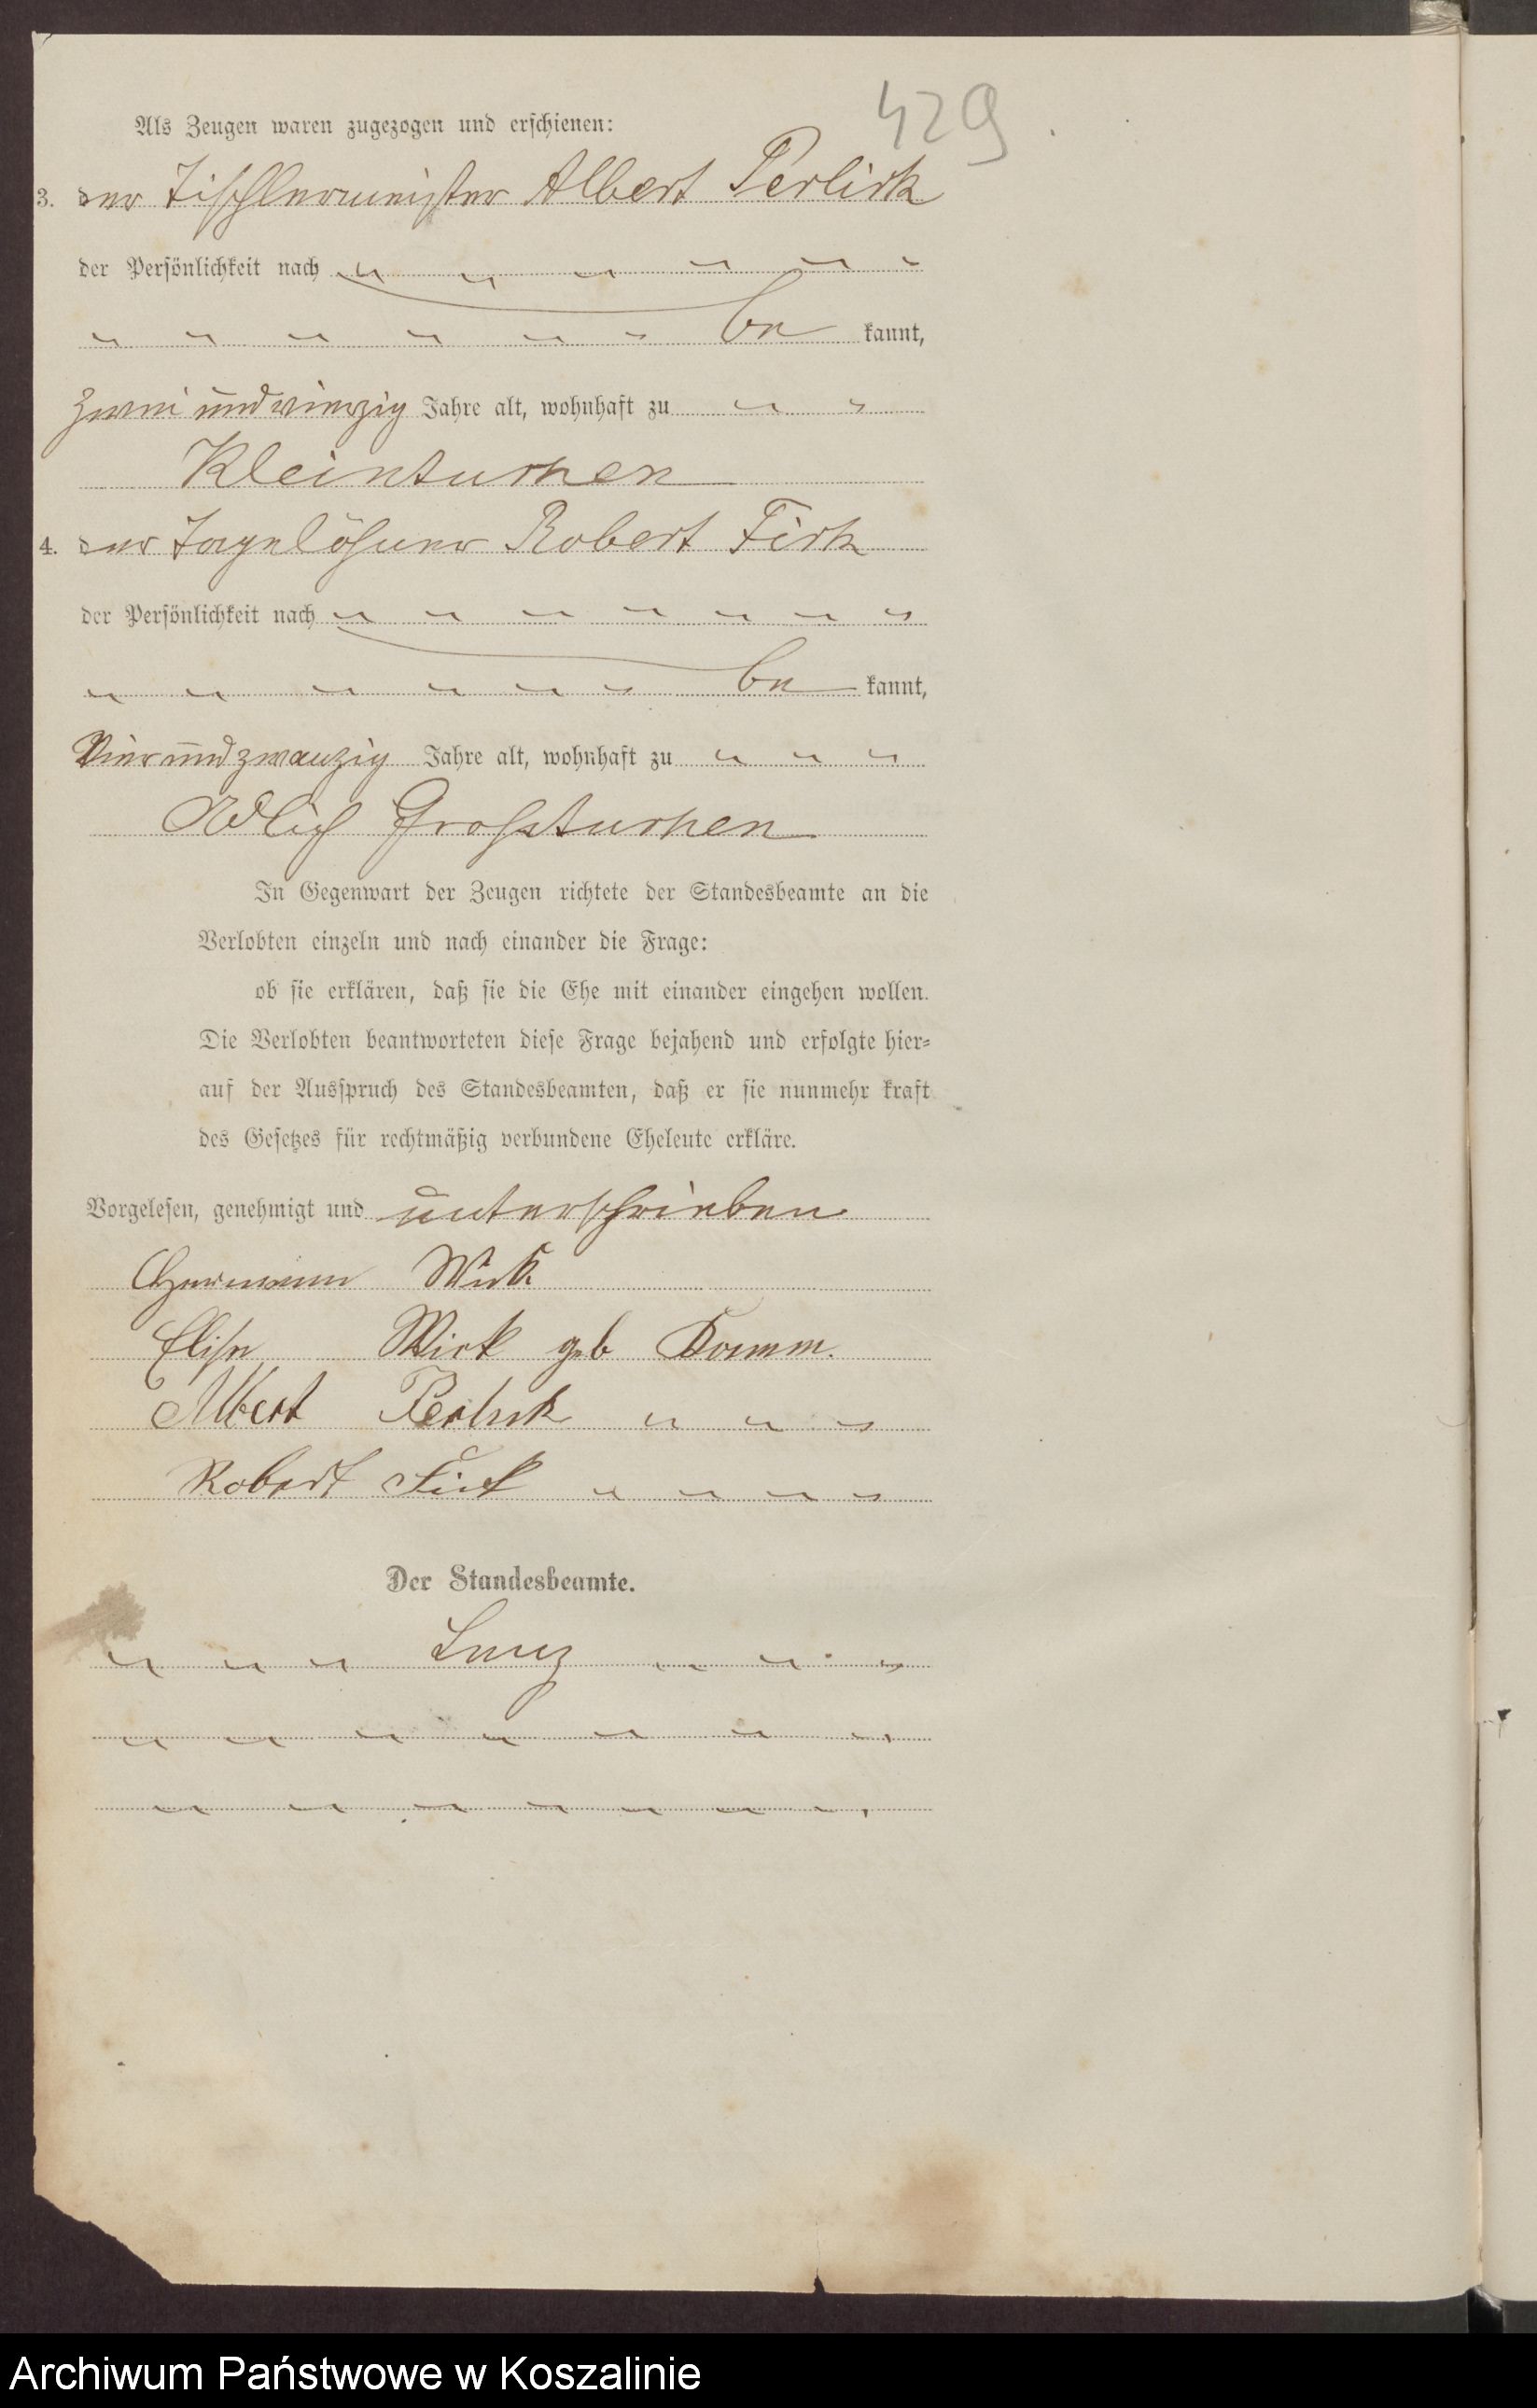 429
Als Zeugen waren zugezogen und erschienen:
3. der Tischlermeister Albert Perlick
der Persönlichkeit nach
be kannt,
zwei und vierzig Jahre alt, wohnhaft zu
Kleinturken
4. der Tagelöhner Robert Fick
der Persönlichkeit nach
be kannt,
Vier und zwanzig Jahre alt, wohnhaft zu
Adlich Großturken
In Gegenwart der Zeugen richtete der Standesbeamte an die
Verlobten einzeln und nach einander die Frage:
ob sie erklären, daß sie die Ehe mit einander eingehen wollen.
Die Verlobten beantworteten diese Frage bejahend und erfolgte hier-
auf der Ausspruch des Standesbeamten, daß er sie nunmehr kraft
des Gesetzes für rechtmäßig verbundene Eheleute erkläre.
Vorgelesen, genehmigt und unterschrieben
Hermann Wick
Elise Wick geb Damm.
Albert Perlick
Robert Fick
Der Standesbeamte.
Archiwum Państwowe w Koszalinie